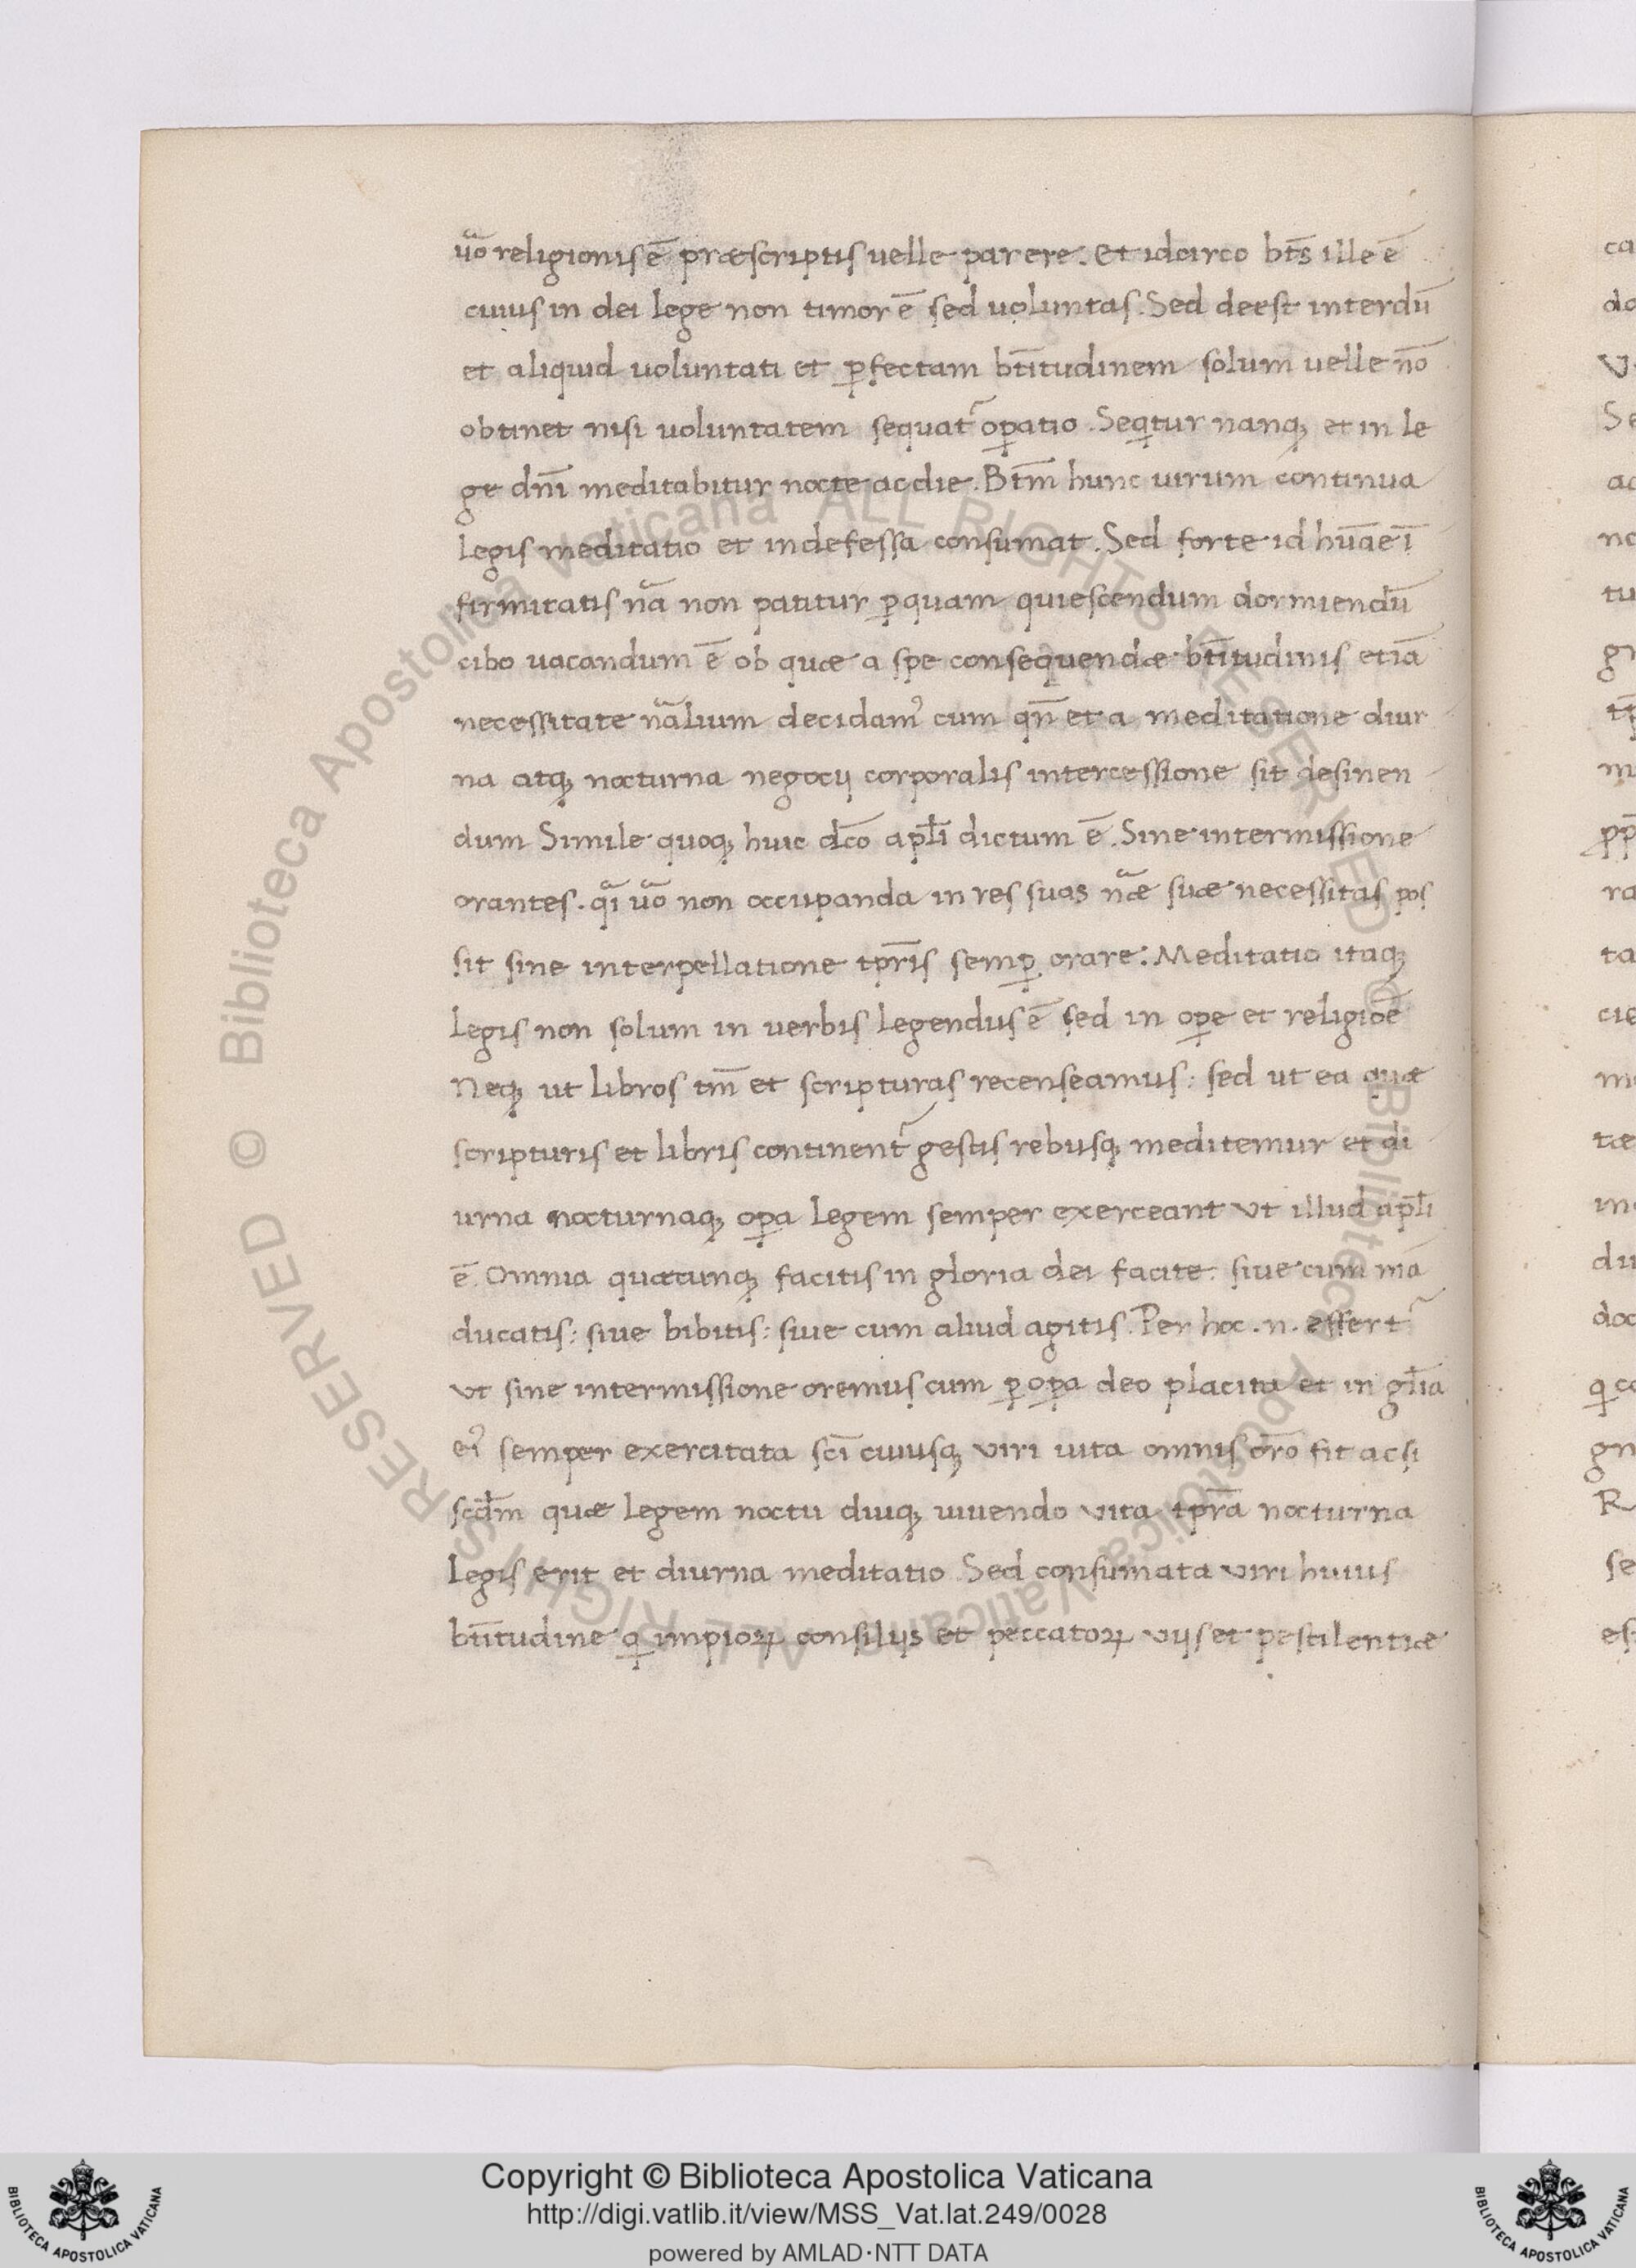 uo͞ religionis ē præscriptis uelle parere. Et idcirco bt͞s ille ē
cuius in dei lege non timor ē sed uoluntas. Sed deest interdū
et aliquid uoluntati et ꝑfectam bt͞itudinem solum uelle no͞
obtinet nisi uoluntatem sequat᷑ oꝑatio. Seqtur nanqꝫ et in le
ge dn͞i meditabitur nocte ac die. Bt͞m hunc uirum continua
Legis meditatio et indefessa consumat. Sed forte id hūae ī
firmitatis na͞ non patitur ꝑquam quiescendum dormiendū
cibo uacandum ē ob quæ a spe consequendæ bt͞itudinis etiā
necessitate na͞lium decidamꝰ cum qn͞ et a meditatione diur
na atqꝫ nocturna negocij corporalis intercessione sit desinen
dum Simile quoqꝫ huic dc͞o apl͞i dictum ē. Sine intermissione
orantes. qi͞ uo͞ non occupanda in res suas na͞e suæ necessitas pos
sit sine interpellatione tpr͞is semꝑ orare: Meditatio itaqꝫ
Legis non solum in verbis legendus ē sed in oꝑe et religioē
Neqꝫ ut libros tm͞ et scripturas recenseamus: sed ut ea quæ
scripturis et libris continent᷑ gestis rebusqꝫ meditemur et di
urna nocturnaqꝫ oꝑa legem semper exerceant Vt illud apl͞i
ē. Omnia quæcunqꝫ facitis in gloria dei facite. siue cum mā
ducatis: siue bibitis: siue cum aliud agitis. Per hoc .n. effert᷑
Vt sine intermissione oremus cum ꝑ oꝑa deo placita et in gl͞ia
eiꝰ semper exercitata sc͞i cuiusqꝫ viri uita omnis or͞o fit ac si
scd͞m quæ legem noctu diuqꝫ uiuendo vita tpr͞a nocturna
Legis erit et diurna meditatio Sed consumata viri huius
bt͞itudine q impioꝝ consilijs et peccatoꝝ vijs et pestilentiæ
Copyright © Biblioteca Apostolica Vaticana
http://digi.vatlib.it/view/MSS_Vat.lat.249/0028
powered by AMLAD·NTT DATA